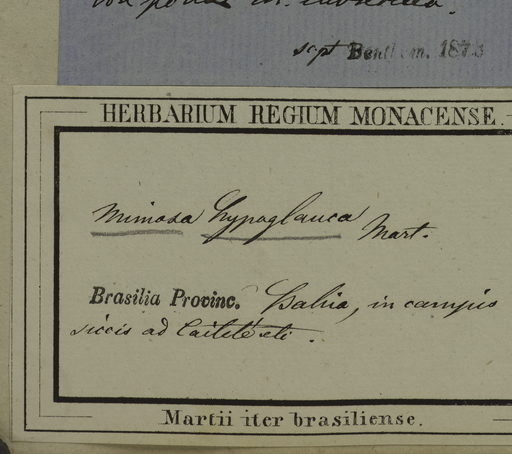 sept Bentham. 1873
HERBARIUM REGIUM MONACENSE.
Mimosa hypoglauca Mart.
Brasilia Provinc. Bahia, in campis
siccis ad Caiteté etc.
Martii iter brasiliense.